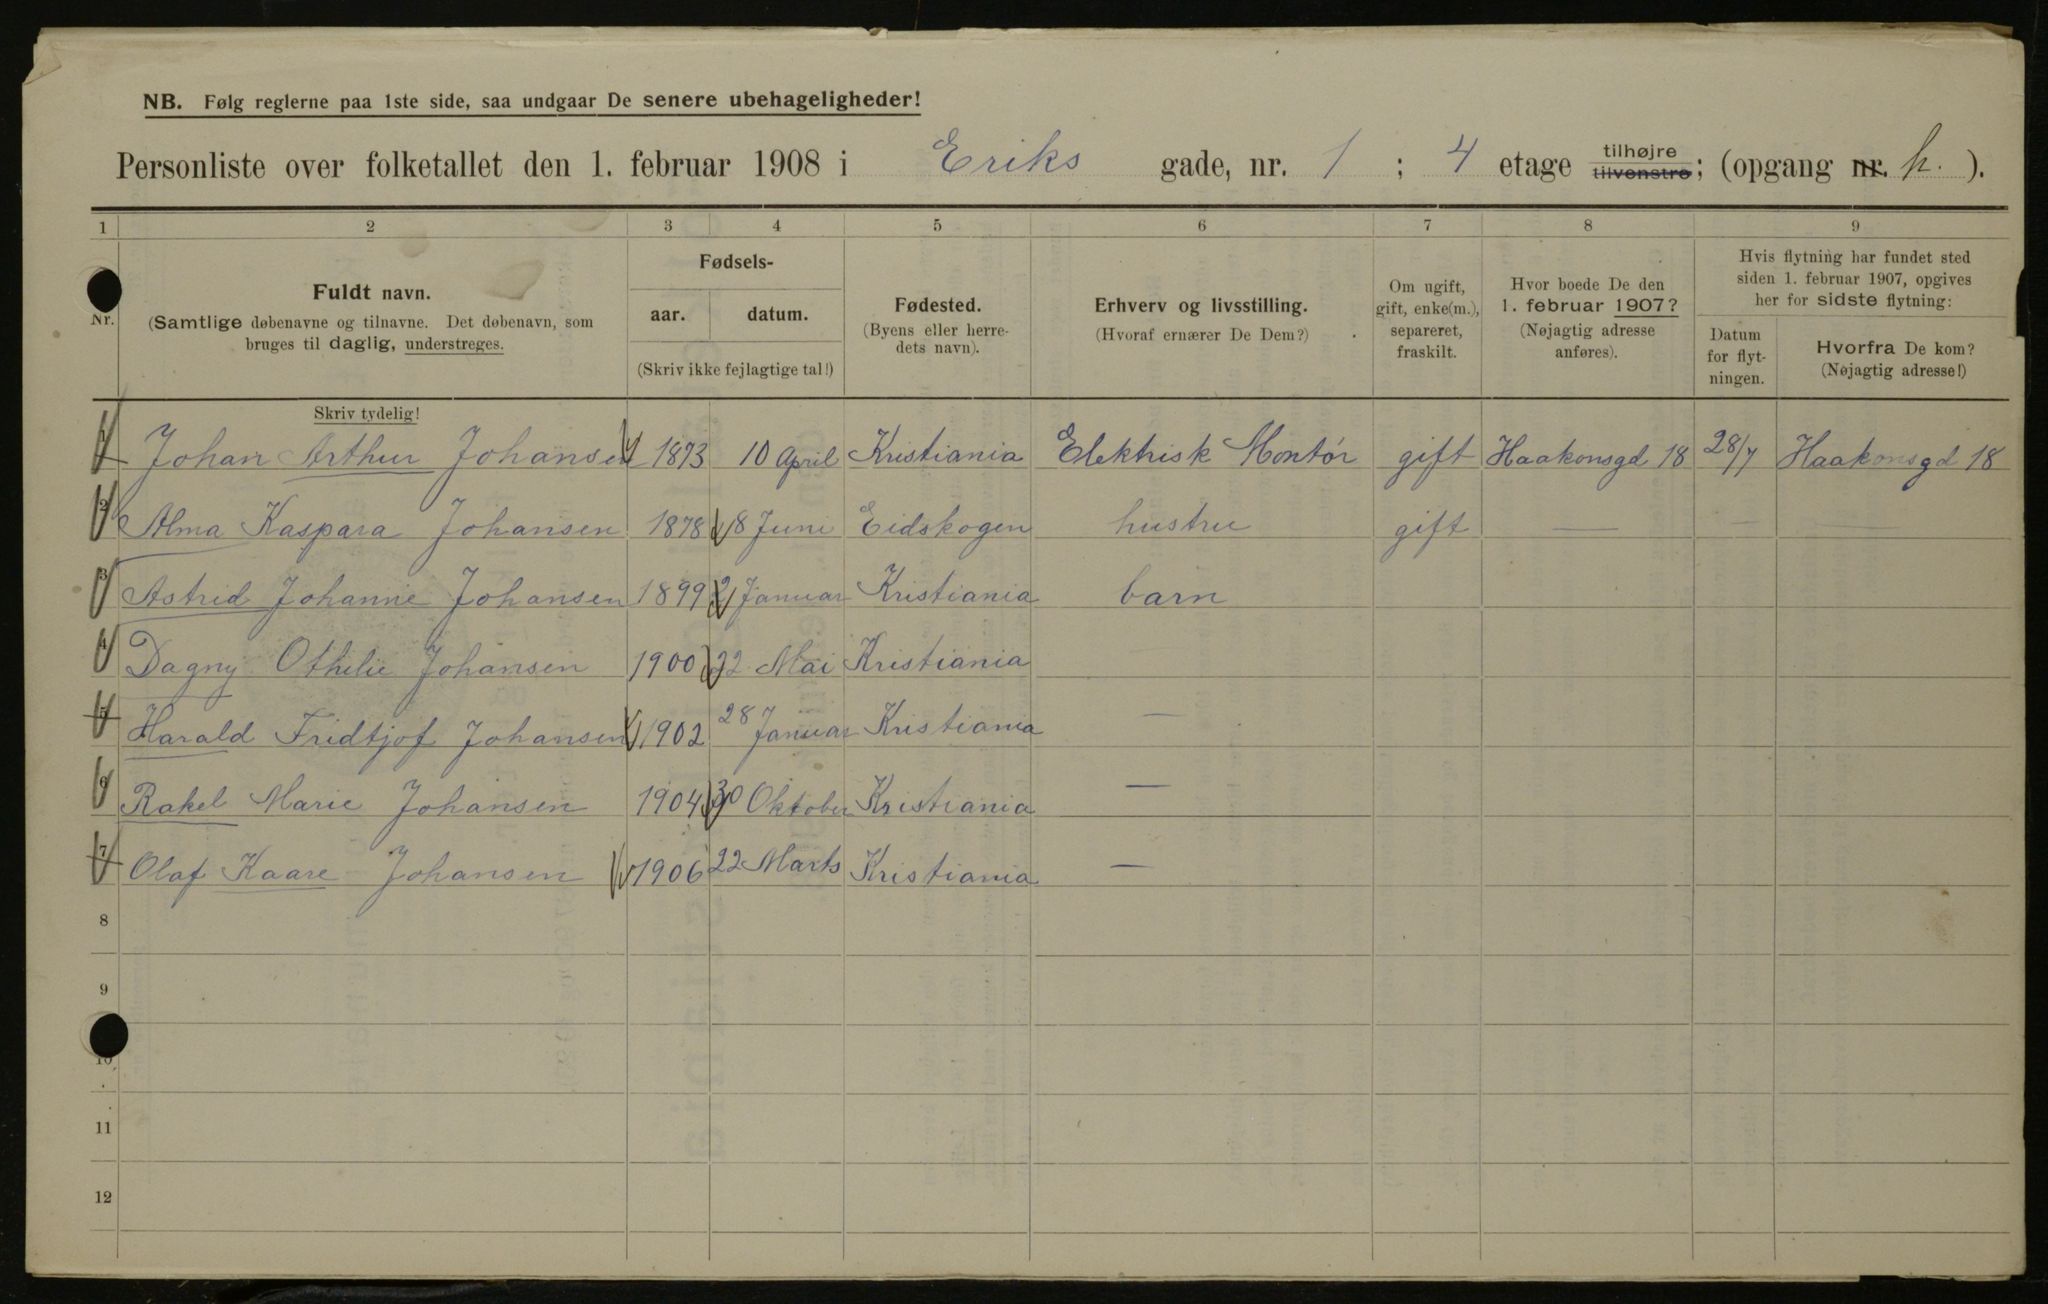 NB. Følg reglerne paa 1ste side, saa undgaar De senere ubehageligheder!
Personliste over folketallet den 1. februar 1908 i Eriks gade, nr. 1 ; 4 etage tilhøjre tilvenstre; (opgang nr. h. ).
1 2 3 4 5 6 7 8 9
Nr.
Fuldt navn.
(Samtlige døbenavne og tilnavne. Det døbenavn, som
bruges til daglig, understreges.
Skriv tydelig!
Fødsels-
aar. datum.
(Skriv ikke fejlagtige tal!)
Fødested.
(Byens eller herre-
dets navn).
Erhverv og livsstilling.
(Hvoraf ernærer De Dem?)
Om ugift,
gift, enke(m.),
separeret,
fraskilt.
Hvor boede De den
1. februar 1907?
(Nøjagtig adresse
anføres).
Hvis flytning har fundet sted
siden 1. februar 1907, opgives
her for sidste flytning:
Datum
for flyt-
ningen.
Hvorfra De kom?
(Nøjagtig adresse!)
1 Johan Arthur Johansen 1873 10 April Kristiania Elektrisk Montør gift Haakonsgd 18 28/7 Haakonsgd 18
2 Alma Kaspara Johansen 1878 8 Juni Eidskogen hustru gift — — —
3 Astrid Johanne Johansen 1899 2 Januar Kristiania barn
4 Dagny Othilie Johansen 1900 22 Mai Kristiania
5 Harald Fridtjof Johansen 1902 28 Januar Kristiania —
6 Rakel Marie Johansen 1904 30 Oktober Kristiania —
7 Olaf Kaare Johansen 1906 22 Marts Kristiania —
8
9
10
11
12